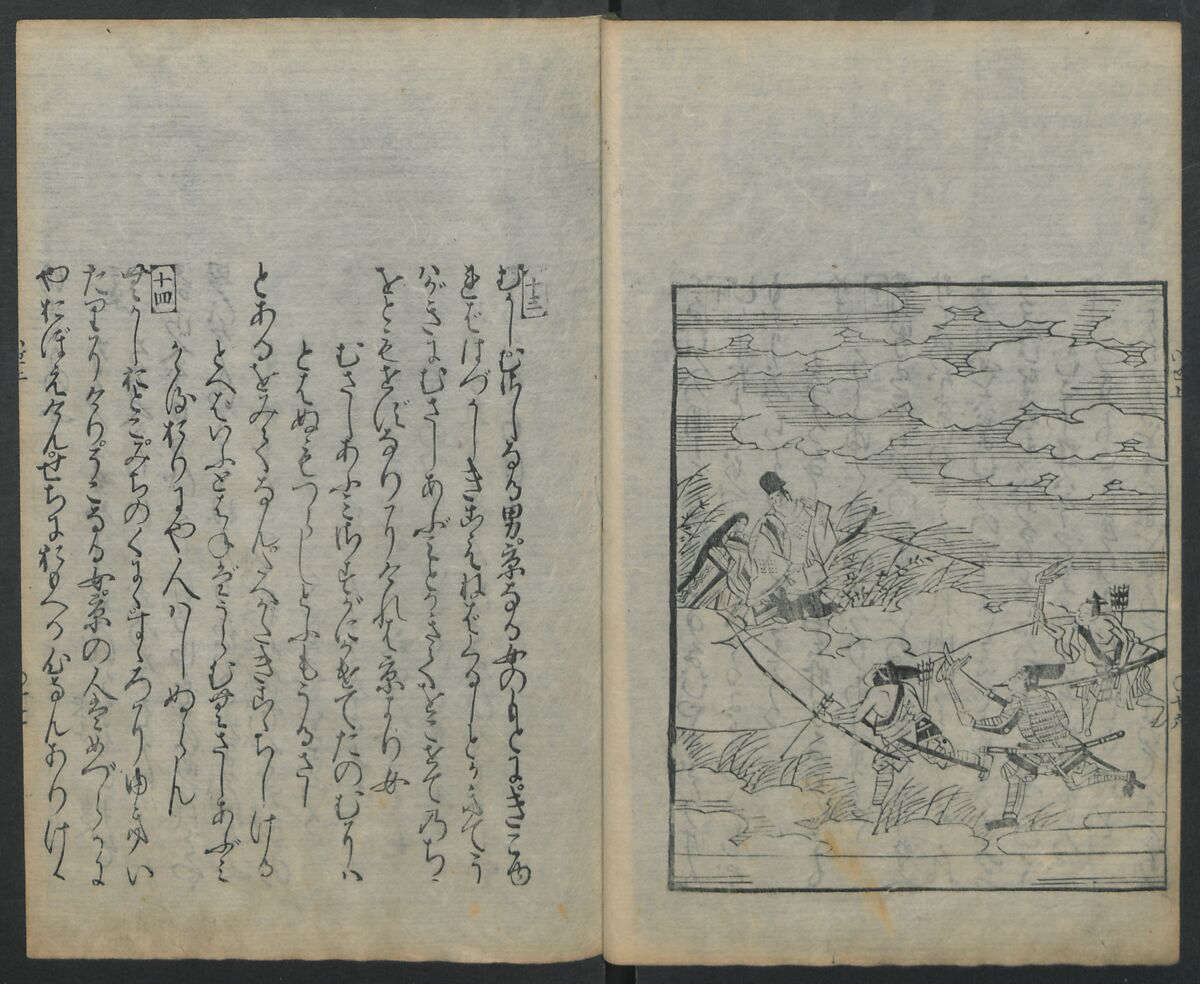 十三
むかしむさしなる男京なる女のもとにきこゆ
ればはづかしきこえねばくるしとかきてう
はがきにむさしあぶみとかきてをこせて乃ち
をともせずなりにければ京より女
むさしあぶみさすがにかけてたのむには
とはぬもつらしとふもうるさし
とあるをみてなんたへがたき心ちしける
とへばいふとはねばうらむむさしあぶみ
かゝるおりにや人はしぬらん
十四
むかしおとこみちのくにゝすゞろにゆきい
たりにけりそこなる女京の人はめづらかに
やおぼえけんせちにおもへる心なんありける